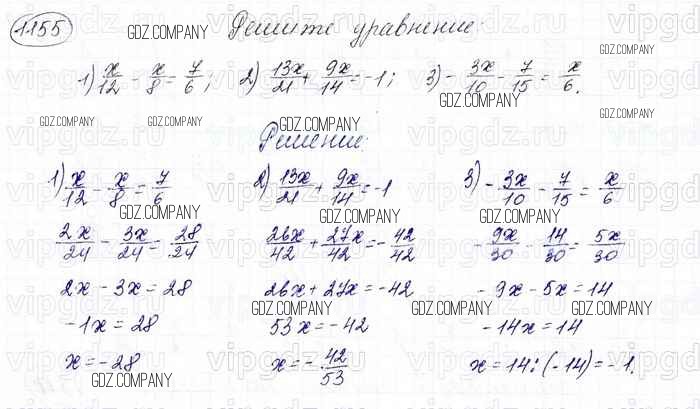 1155 Решите уравнение:
1) x/12 - x/8 = 7/6; 2) 13x/21 + 9x/14 = -1; 3) - 3x/10 - 7/15 = x/6.
Решение:
1) x/12 - x/8 = 7/6
2x/24 - 3x/24 = 28/24
2x - 3x = 28
-1x = 28
x = -28
2) 13x/21 + 9x/14 = -1
26x/42 + 27x/42 = - 42/42
26x + 27x = -42
53x = -42
x = - 42/53
3) - 3x/10 - 7/15 = x/6
- 9x/30 - 14/30 = 5x/30
- 9x - 5x = 14
- 14x = 14
x = 14 : (-14) = -1.
GDZ.COMPANY
vipgdz.ru